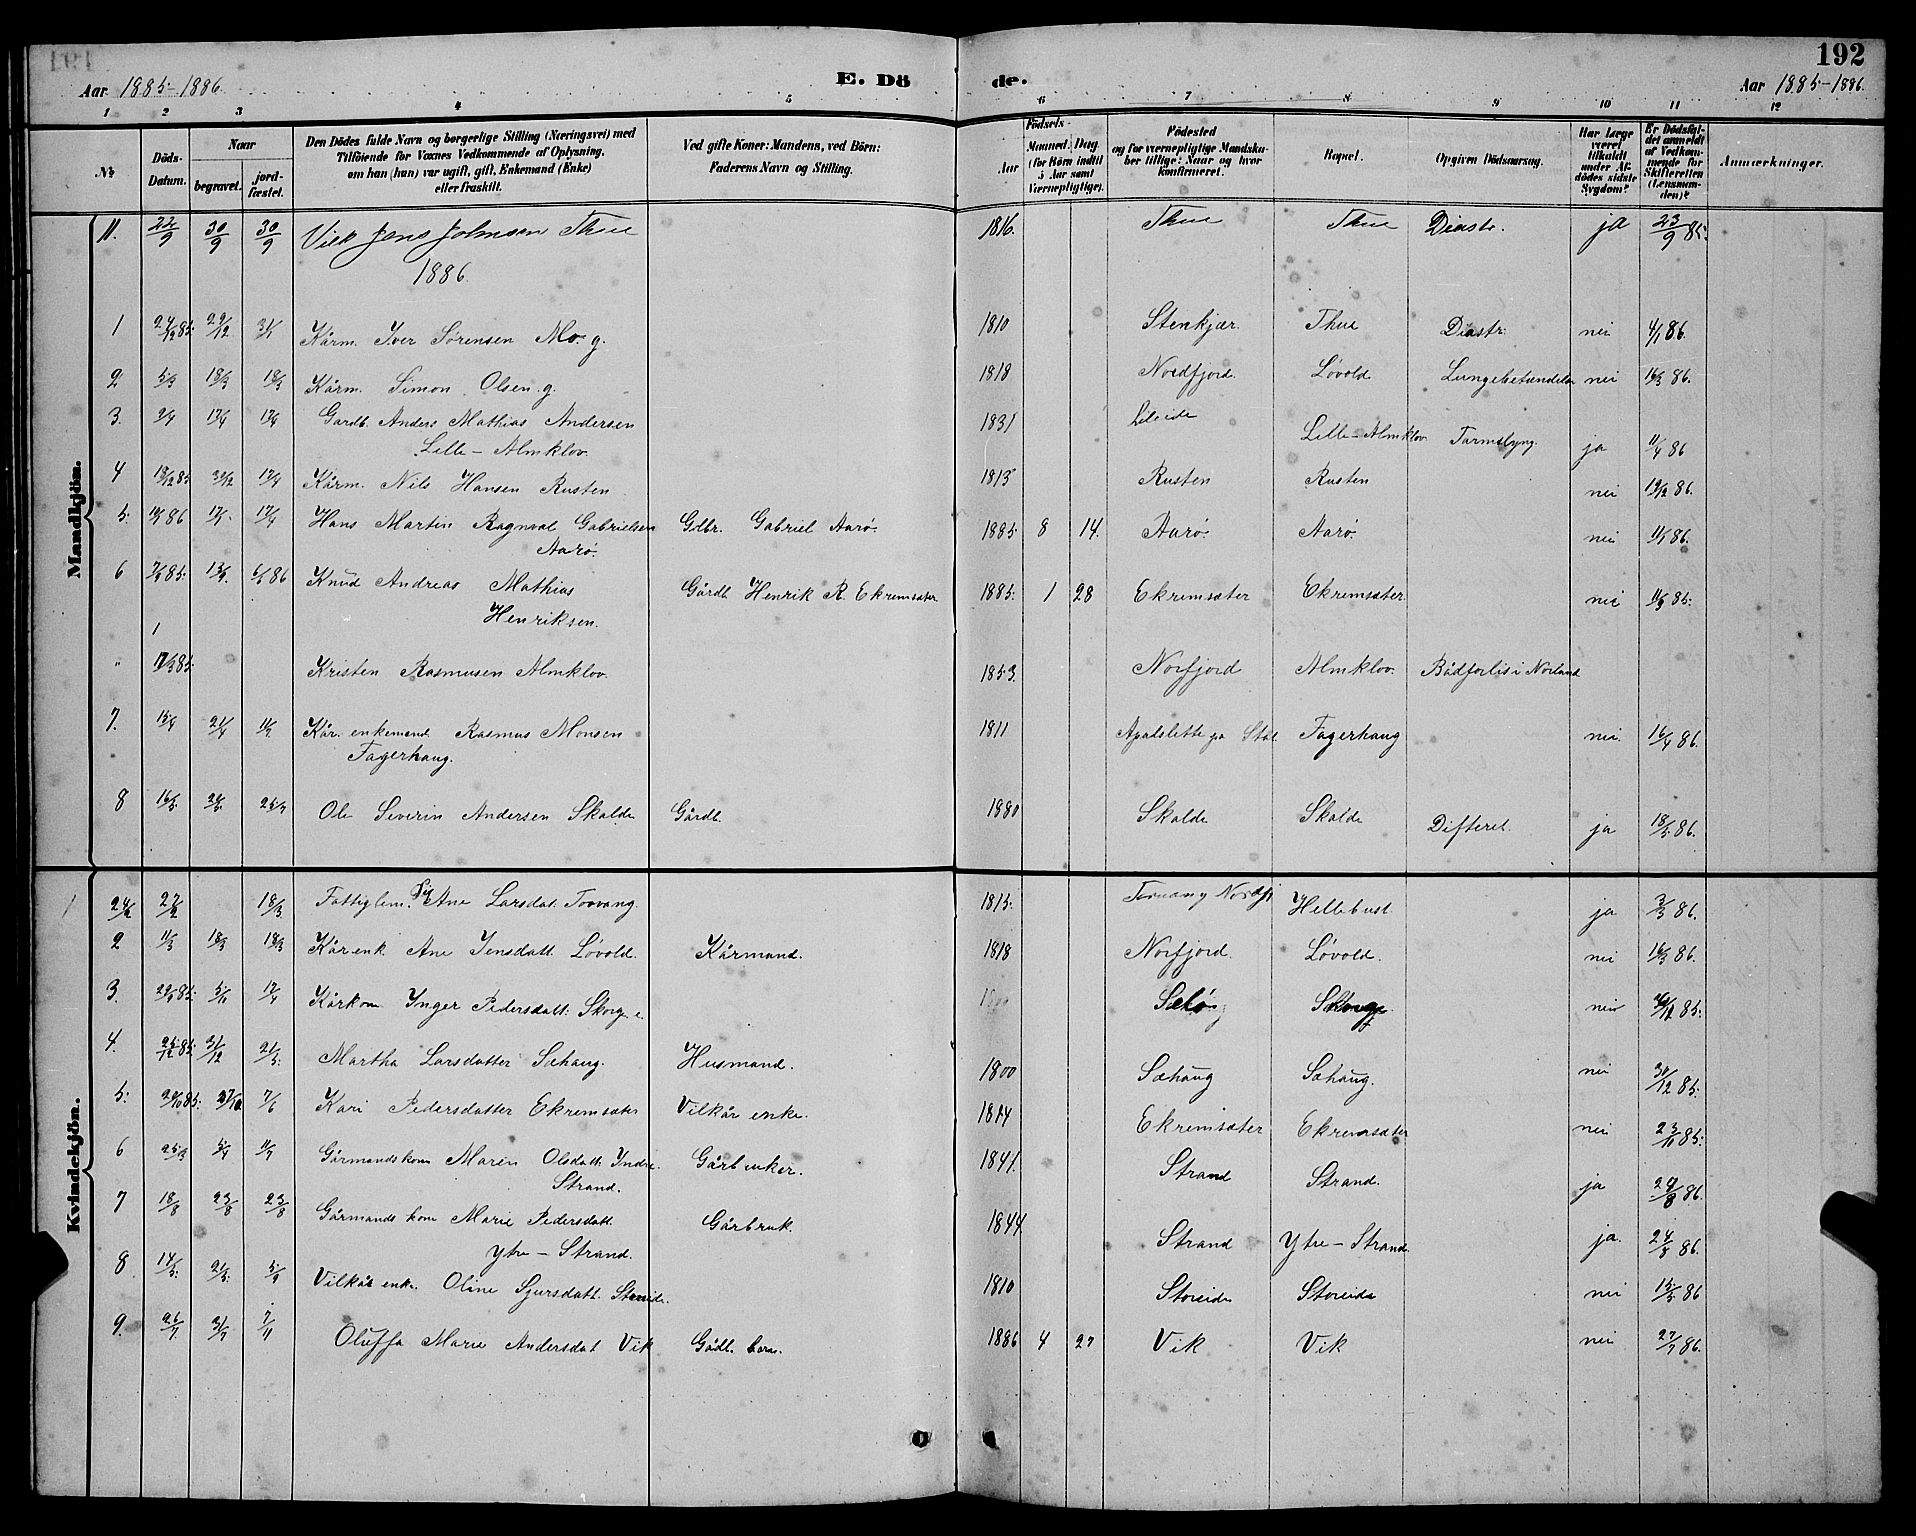 192
Aar 1885-1886
E. Dö de.
Aar 1885-1886.
1 2 3 4 5 6 7 8 9 10 11 12
№ Döds-Datum. Naar begravet. jord-fæstet. Den Dödes fulde Navn og borgerlige Stilling (Næringsvei) med Tilföiende for Voxnes Vedkommende af Oplysning, om han (hun) var ugift, gift, Enkemand (Enke) eller fraskilt. Ved gifte Koner: Mandens, ved Börn: Faderens Navn og Stilling. Födsels- Aar Maaned. Dag (for Börn indtil 5 Aar samt Værnepligtige). Födested og for værnepligtige Mandskaber tillige: Naar og hvor konfirmeret. Bopæl. Opgiven Dödsaarsag. Har Læge været tilkaldt under Afdödes sidste Sygdom? Er Dödsfaldet anmeldt af Vedkommende for Skifteretten (Lensmanden)? Anmærkninger.
Mandkjön.
11. 22/9 30/9 30/9 Vilk Jens Johnsen Thue 1816. Thue Thue Diastr. ja 23/9 85.
1886.
1 24/12 85. 29/12 3/1 Kårm. Iver Sørensen Mo. g. 1810 Stenkjær Thue Diastr. nei 4/1 86.
2 5/3 18/3 18/3 Kårm. Simon Olsen. g. 1818 Nordfjord. Løvold Lungebetændelse nei 16/3 86.
3. 9/4 17/4 17/4 Gardb. Anders Mathias Andersen 1831 Lileide Lille-Almklov Tarmslyng. ja 11/4 86
Lille-Almklov.
4 18/12 85 31/12 17/4 Kårm. Nils Hansen Rusten 1813 Rusten Rusten nei 19/12 86.
5. 10/1 86 17/1. 17/4 Hans Martin Ragnval Gabrielsen Glbr. Gabriel Aarø. 1885. 8 14. Aarø. Aarø. nei 11/1 86.
Aarø.
6 7/9 85. 13/9. 6/1 86 Knud Andreas Mathias Gårdb. Henrik R. Ekremsæter 1885. 1 28 Ekremsæter Ekremsæter. nei 11/9 85.
Henriksen.
" 17/3 85. Kristen Rasmusen Almklov. 1853. Norfjord Almklov. Bådforlis i Norland
7. 15/4 21/4 11/7 Kår. enkemand Rasmus Monsen 1811 Apalslette pa Stat. Fagerhaug nei. 16/4 86.
Fagerhaug.
8 16/5. 25/7 Ole Severin Andersen Skalde Gårdb. 1880 Skalde Skalde Difteret. ja 18/5 86.
Kvindekjön.
24/2 27/2 18/3 Fattiglem. Ane Larsdat. Torvang. 1815. Hellebust ja 3/3 86.
2 11/3 18/3 18/3 Kår.enk. Ane Jensdatt. Løvold. Kårmand. 1818 Norfjord. Løvold. nei 16/3 86.
3. 5/11 17/4 Kårkone Ynger Pedersdatt. Skorge. Skorge. nei 85.
4. 25/12 85. 31/12 21/5. Martha Larsdatter Sæhaug. Husmand. 1800 Sæhaug Sæhaug. nei 30/12 85.
5. 20/10 85. 27/10. 7/6 Kari Pedersdatter Ekremsæter Vilkår enke. 1814 Ekremsæter Ekremsæter nei 23/11 85.
6 25/3 5/4 11/7 Gårmandskone Maren Olsdatt. Yndre. Gårbruker. 1841. Strand Strand. ja 24/8 86.
Strand.
7 18/8 23/8 23/8 Gårmands kone Marie Pedersdatt. Gårbruk. 1844 Strand Ytre-Strand. ja. 24/8 86.
Ytre-Strand.
8 14/5. 21/5. 5/9 Vilkår enke. Oline Sjursdatt. Storeide. 1810 Storeide Storeide nei 15/5 86
9. 26/7 31/7 7/11 Oluffa Marie Andersdat Vik Gådb. barn. 1886 4 27 Vik Vik nei 27/7 86.